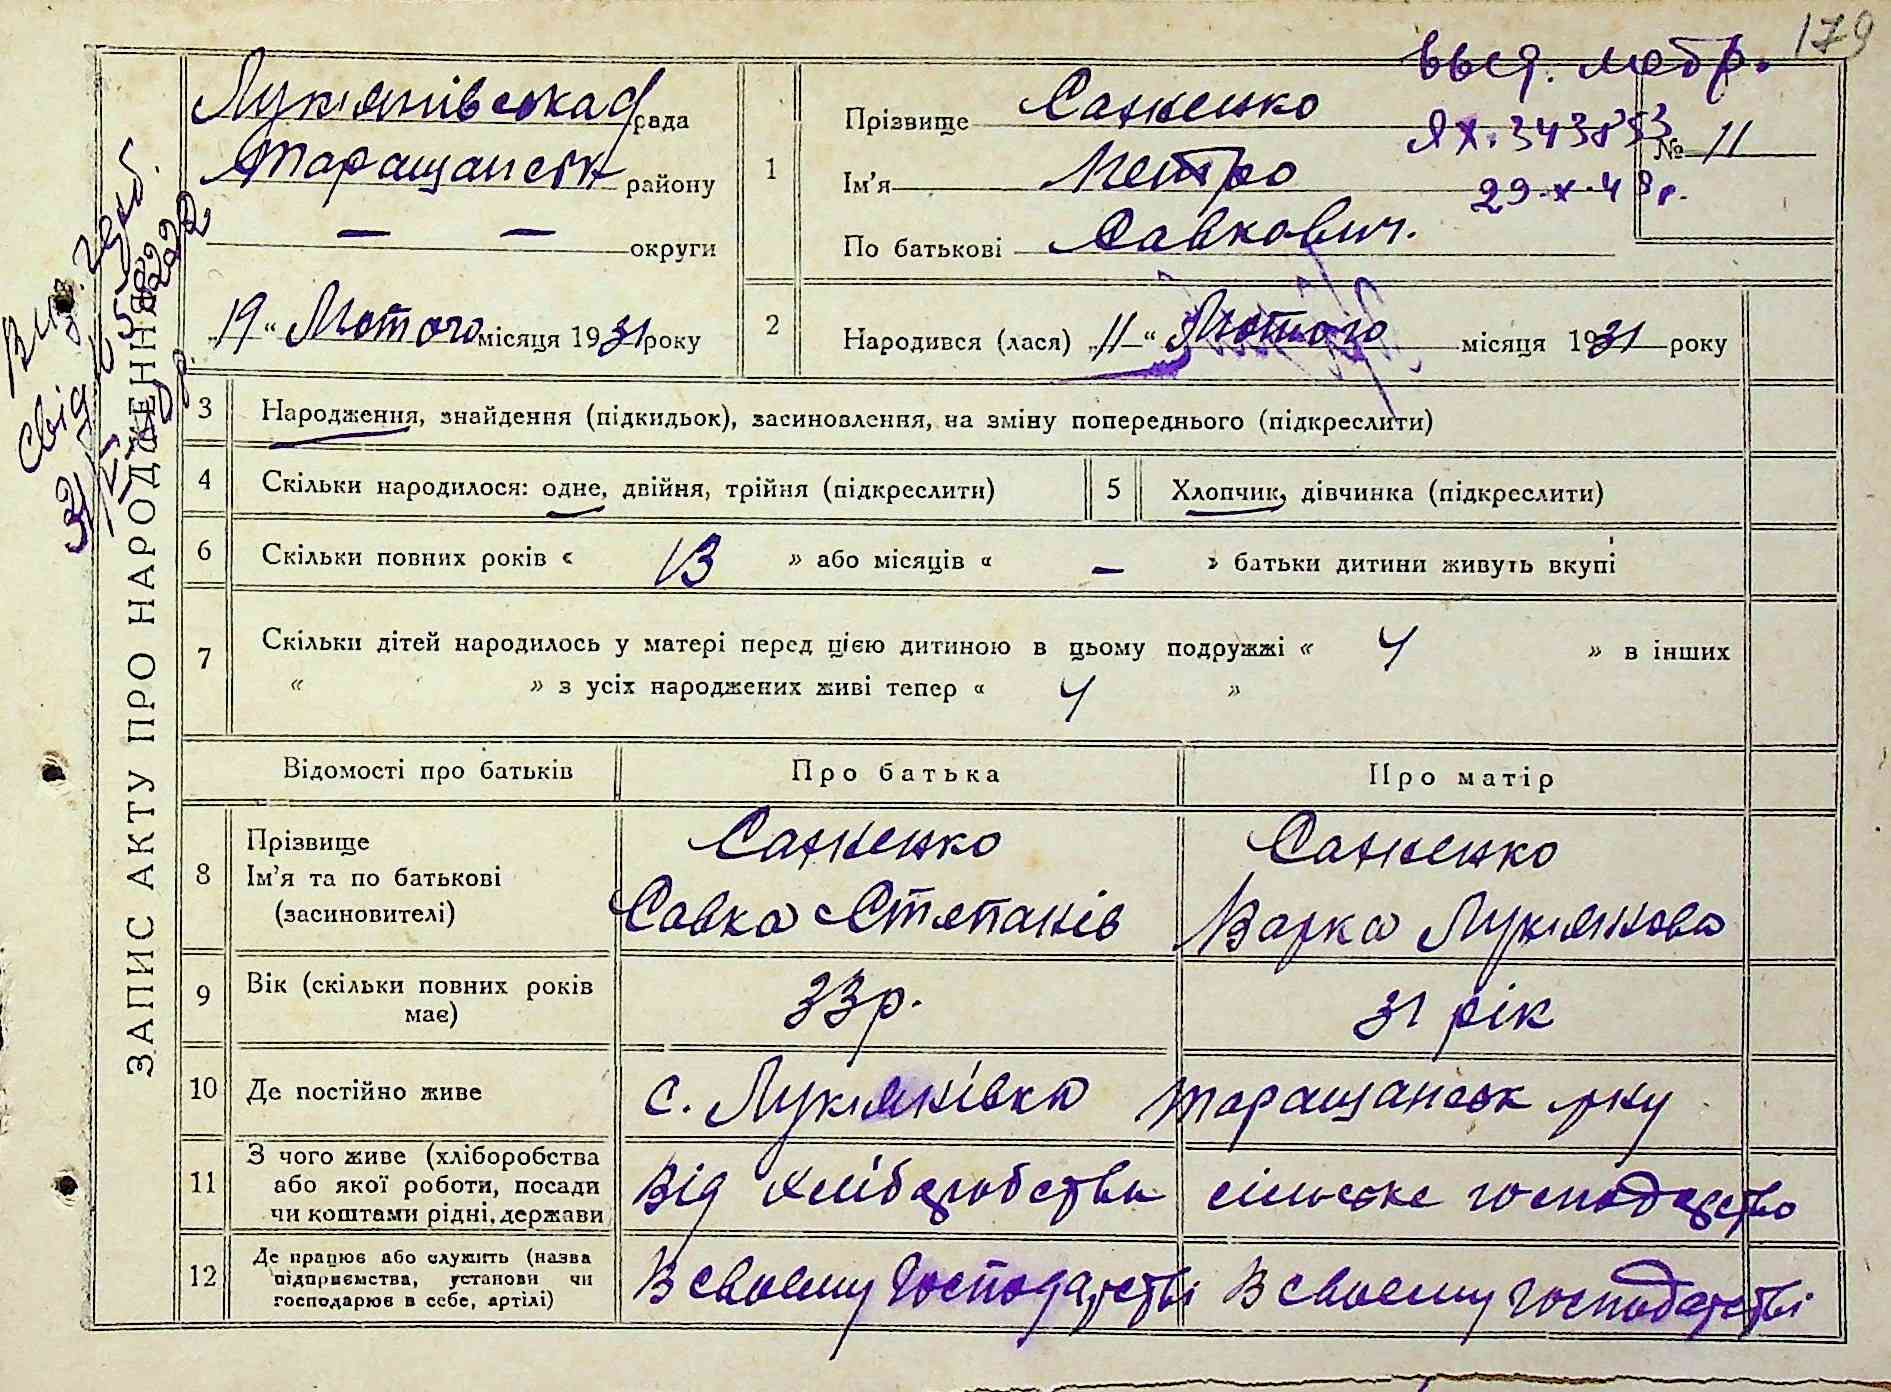 179
Лук'янівська рада
Таращанськ району
— — округи
„19“ Лютого місяця 1931 року
1
Прізвище Саженко
Ім'я Петро
По батькові Савкович.
ЯХ. 343853
29-х-48р.
№ 11
2
Народився (лася) „11“ Лютого місяця 1931 року
ЗАПИС АКТУ ПРО НАРОДЖЕННЯ
3 Народження, знайдення (підкидьок), засиновлення, на зміну попереднього (підкреслити)
4 Скільки народилося: одне, двійня, трійня (підкреслити)
5 Хлопчик, дівчинка (підкреслити)
6 Скільки повних років « 13 » або місяців « — » батьки дитини живуть вкупі
7 Скільки дітей народилось у матері перед цією дитиною в цьому подружжі « 4 » в інших
« » з усіх народжених живі тепер « 4 »
Відомості про батьків Про батька Про матір
8 Прізвище Саженко Саженко
Ім'я та по батькові Савка Степанів Варка Лук'янова
(засиновителі)
9 Вік (скільки повних років 33р. 31 рік
має)
10 Де постійно живе с. Лук'янівка Таращанськ р-ну
11 З чого живе (хліборобства
або якої роботи, посади Від хліборобства сільське господарство
чи коштами рідні, держави
12 Де працює або служить (назва
підприємства, установи чи В своєму господарстві В своєму господарстві
господарює в себе, артілі)